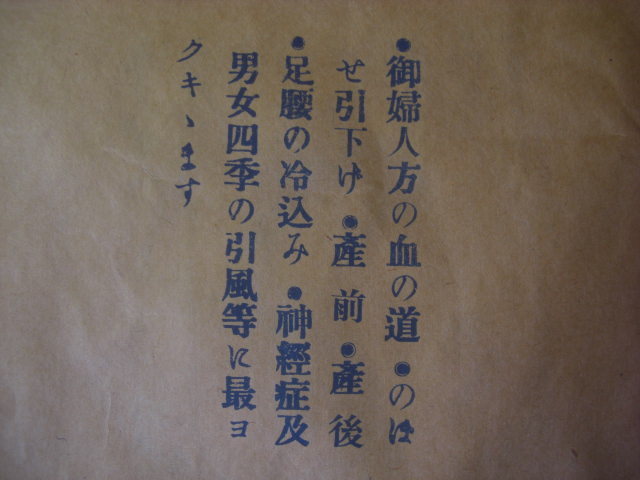 ◉御婦人方の血の道◉のぼ
せ引下げ◉產前◉產後
◉足腰の冷込み◉神經症及
男女四季の引風等に最ヨ
クキヽます